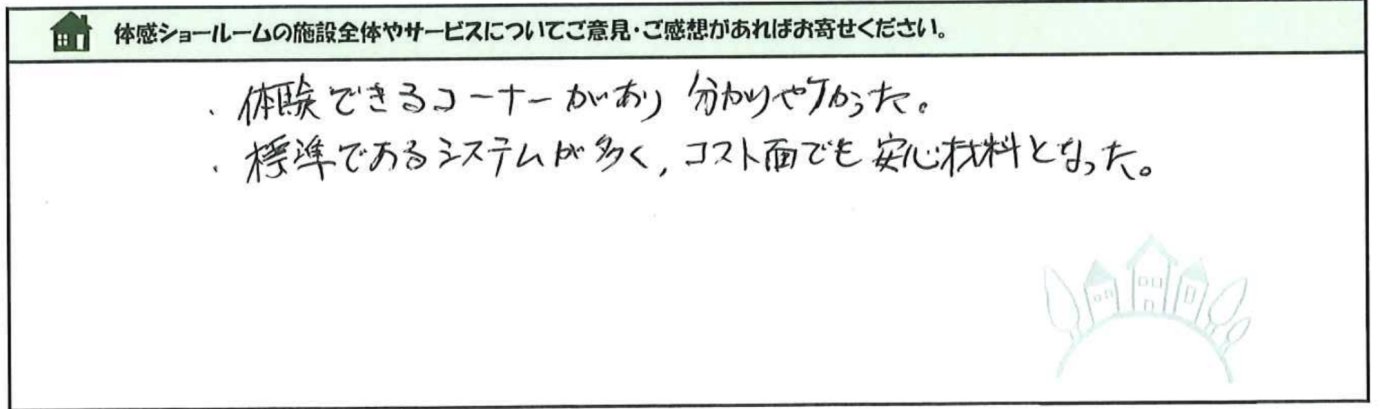 体感ショールームの施設全体やサービスについてご意見・ご感想があればお寄せください。
・体験できるコーナーがあり 分かりやすかった。
・標準であるシステムが多く, コスト面でも安心材料となった。